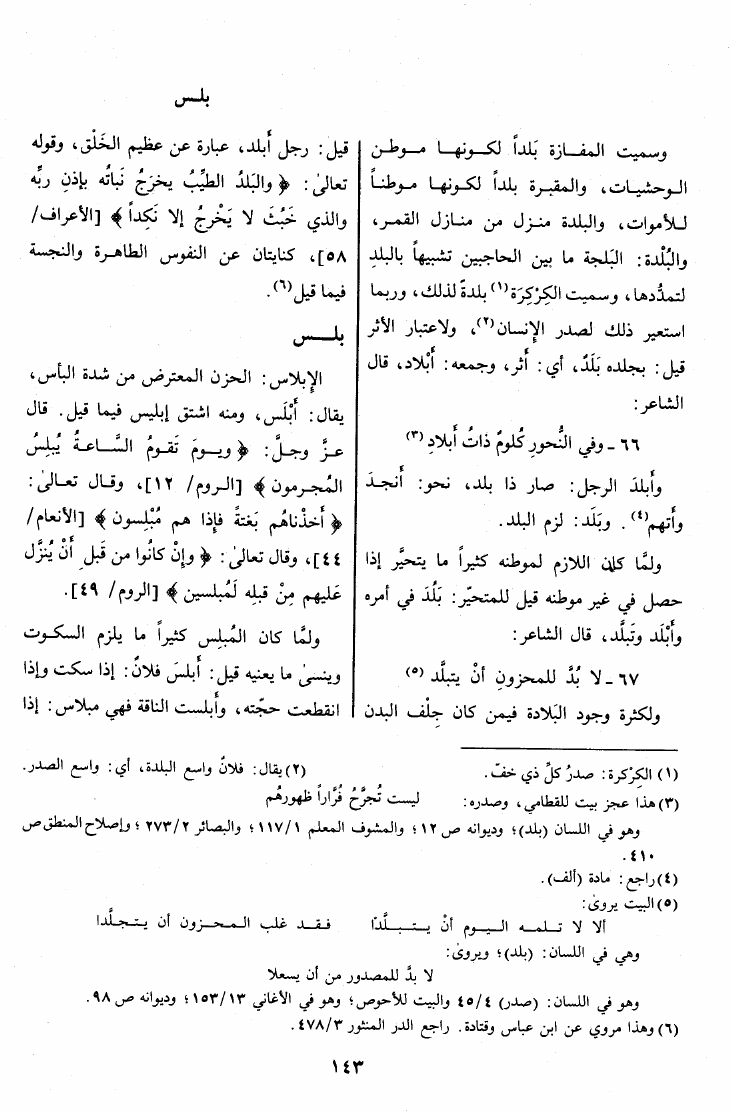 بلـس
وسميت المفـازة بَلداً لكـونهـا مـوطـن
الـوحشيـات، والمقبـرة بلداً لكـونهـا مـوطنـاً
لـلأموات، والبلدة منـزل من منـازل القمـر،
والبُلْدة: البَلجة ما بين الحاجبين تشبيهاً بالبلدِ
لتمدُّدها، وسميت الكِرْكِرَة(١) بلدةً لذلك، وربما
استعير ذلك لصدر الإنسان(٢)، ولاعتبار الأثر
قيل: بجلده بَلَدٌ، أي: أثر، وجمعه: أَبْلاد، قال
الشاعر:
٦٦ ـ وفي النُّحورِ كُلومٌ ذاتُ أبلادِ(٣)
وأَبلدَ الرجل: صار ذا بلد، نحو: أَنجـدَ
وأتهم(٤). وبَلَد: لزم البلد.
ولمَّا كان اللازم لموطنه كثيراً ما يتحيَّر إذا
حصل في غير موطنه قيل للمتحيّر: بَلُدَ في أمره
وأَبْلَد وتَبلَّد، قال الشاعر:
٦٧ ـ لا بُدَّ للمحزونِ أنْ يتبلَّد(٥)
ولكثرة وجود البَلادة فيمن كان جِلْف البدن
قيل: رجل أَبلد، عبارة عن عظيم الخَلْق، وقوله
تعالىٰ: ﴿ والبَلدُ الطيِّبُ يخرجُ نَباتُه بإذنِ ربِّه
والذي خَبُثَ لا يَخْرجُ إلا نَكِداً ﴾ [الأعراف/
٥٨]، كنايتان عن النفوس الطاهـرة والنجسة
فيما قيل(٦).
بلــس
الإبلاس: الحزن المعترض من شدة البأس،
يقال: أَبْلَس، ومنه اشتق إبليس فيما قيل. قال
عـزَّ وجـلَّ: ﴿ ويـومَ تَقـومُ السَّـاعـةُ يُبلِسُ
المُجـرمون ﴾ [الـروم/ ١٢]، وقـال تعـالىٰ:
﴿ أَخذْناهُم بَغتةً فإذا هم مُبْلِسون ﴾ [الأنعام/
٤٤]، وقال تعالىٰ: ﴿ وإنْ كانُوا من قَبلِ أَنْ يُنزَّل
عَليهم مِنْ قبلِه لَمُبلسين ﴾ [الروم/ ٤٩].
ولمَّا كان المُبلِس كثيراً ما يلزم السكـوت
وينسىٰ ما يعنيه قيل: أَبلسَ فلانٌ: إذا سكت وإذا
انقطعت حجّته، وأَبلست الناقة فهي مبلاس: إذا
(١) الكِرْكرة: صدرُ كلِّ ذي خفّ.
(٢) يقال: فلانٌ واسع البلدة، أي: واسع الصدر.
(٣) هذا عجز بيت للقطامي، وصدره: ليست تُجرَّحُ فُرَّاراً ظهورهُم
وهو في اللسان (بلد)؛ وديوانه ص ١٢؛ والمشوف المعلم ١١٧/١؛ والبصائر ٢٧٣/٢؛ وإصلاح المنطق ص
٤١٠.
(٤) راجع: مادة (ألف).
(٥) البيت يروىٰ:
ألا لا تـلمـه اليـوم أنْ يـتـبـلَّدَا فـقـد غلب الـمحـزون أن يـتـجـلَّدا
وهي في اللسان: (بلد)؛ ويروىٰ:
لا بدَّ للمصدور من أن يسعلا
وهو في اللسان: (صدر) ٤٥/٤ والبيت للأحوص؛ وهو في الأغاني ١٥٣/١٣؛ وديوانه ص ٩٨.
(٦) وهذا مروي عن ابن عباس وقتادة. راجع الدر المنثور ٤٧٨/٣.
١٤٣